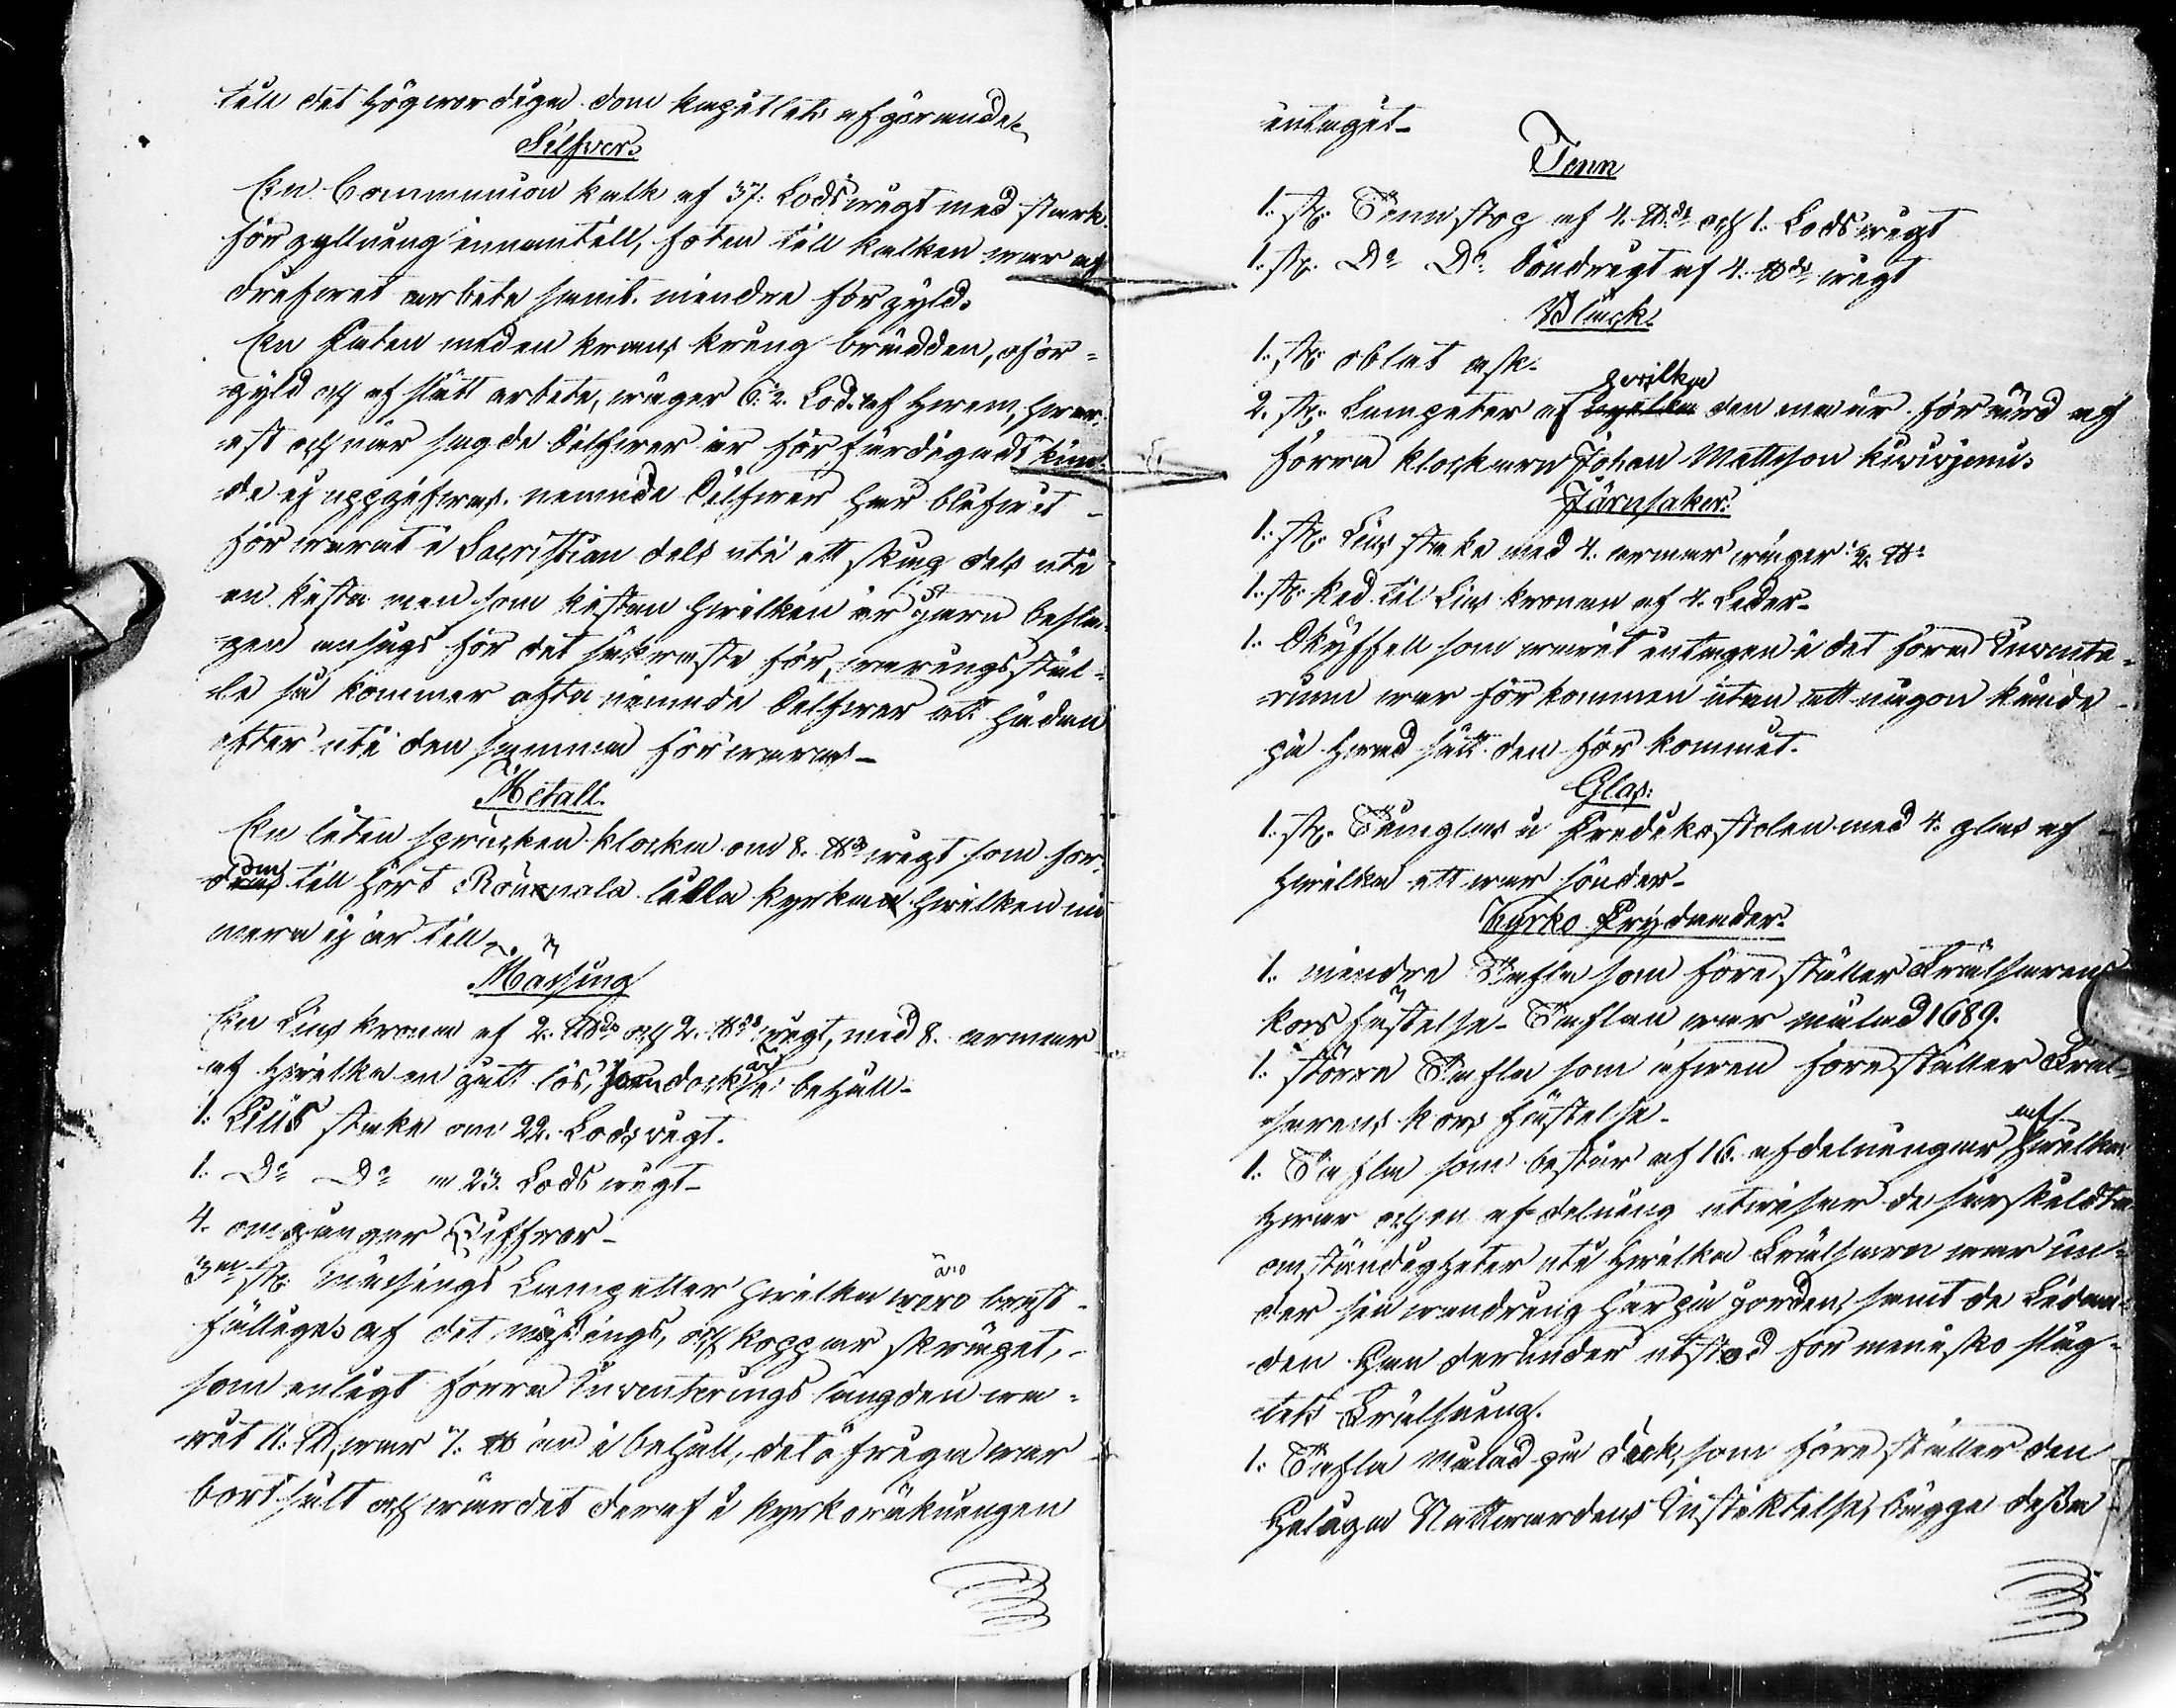 till det Högwördiga dom kapitlets afgörande
Silfwer.
En Communion kalk af 37. Lods wigt med stark
förgyllning innantill, foten till kalken war af
drifwet arbete samt mindre förgyld.
En Paten med en krans kring brädden, oför-
gyld och af slätt arbete, wäger 6½. Lod. af hwem, hwar-
est och när sagde Silfwer är förfärdigadt kun-
de ej uppgifwas. nemnde Silfwer har blifwit
förwarat i Sacristian dels uti ett skåp dels uti
en kista men som kistan hwilken är järn besla-
gen anses för det säkraste förwaringsstäl-
le så kommer ofta nämnde Silfwer att hädan
efter uti den samma förwaras-
Metall.
En liten sprucken klocka om 8. ℔ wigt som for-
dom till hört Rounala lilla kyrka hwilken nu
mera ej är till
Mässing
En Lius krona af 2. L℔ och 2. ℔ wigt, med 8. armar
af hwilka en gått lös, men dock i behåll-
1. Lius stake om 22. Lods wigt.
1. Do Do " 23. Lods wigt-
4. omgångar Siffror-
3ne st. mässings Lampetter hwilka äro bräck-
fällige. af det mässings, och koppar skräpet,
som enligt förra Inventerings längden wa-
rit 11. ℔, war 7. ℔ än i behåll, det öfriga war
bortsålt och wärdet deraf i kyrkoräkningen
intaget-
Tenn
1. st. Tenn stop af 4. ℔ och 1. Lods wigt
1. st. Do Do Söndrigt af 4. ℔ wigt
Bläck.
1. st. oblat ask.
2. st. Lampeter af hwilka den ena är förärd af
förra klockaren Johan Mattsson
Järnsaker.
1. st. Lius stake med 4. armar wäger ½. ℔
1. st. ked till Lius kronan af 4. Leder-
1. Skyffell som warit intagen i det förra Inventa-
rium war förkommen utan att någon kunde
på hwad sätt den för kommit.
Glas:
1. st. Timglas å Predikostolen med 4. glas af
hwilka ett war sönder-
Kyrko Prydnader.
1. mindre Tafla som föreställer Frälsarens
korsfästelse- Taflan war målad 1689.
1. större Tafla som äfwen föreställer Fräl-
sarens korsfästelse-
1. Tafla som består af 16. afdelningar af hwilka
hwar och en afdelning utwisar de särskildta
omständigheter uti hwilka Frälsaren war un-
der sin wandring här på jorden, samt de Lidan-
den Han derunder utstod för menisko släg-
tets Frälsning.
1. Tafla målad på duk, som föreställer den
Heliga Nattwardens Instiktelse, bägge dessa